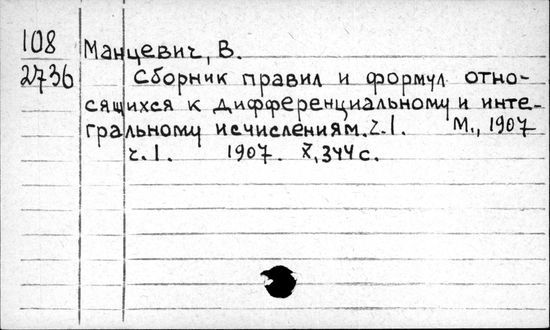 108
2736
Манцевич, В.
Сборник правил и формул отно-
сящихся к дифференциальному и инте-
гральному исчислениям. ч. I. М., 1907
ч. I. 1907. X, 344 с.